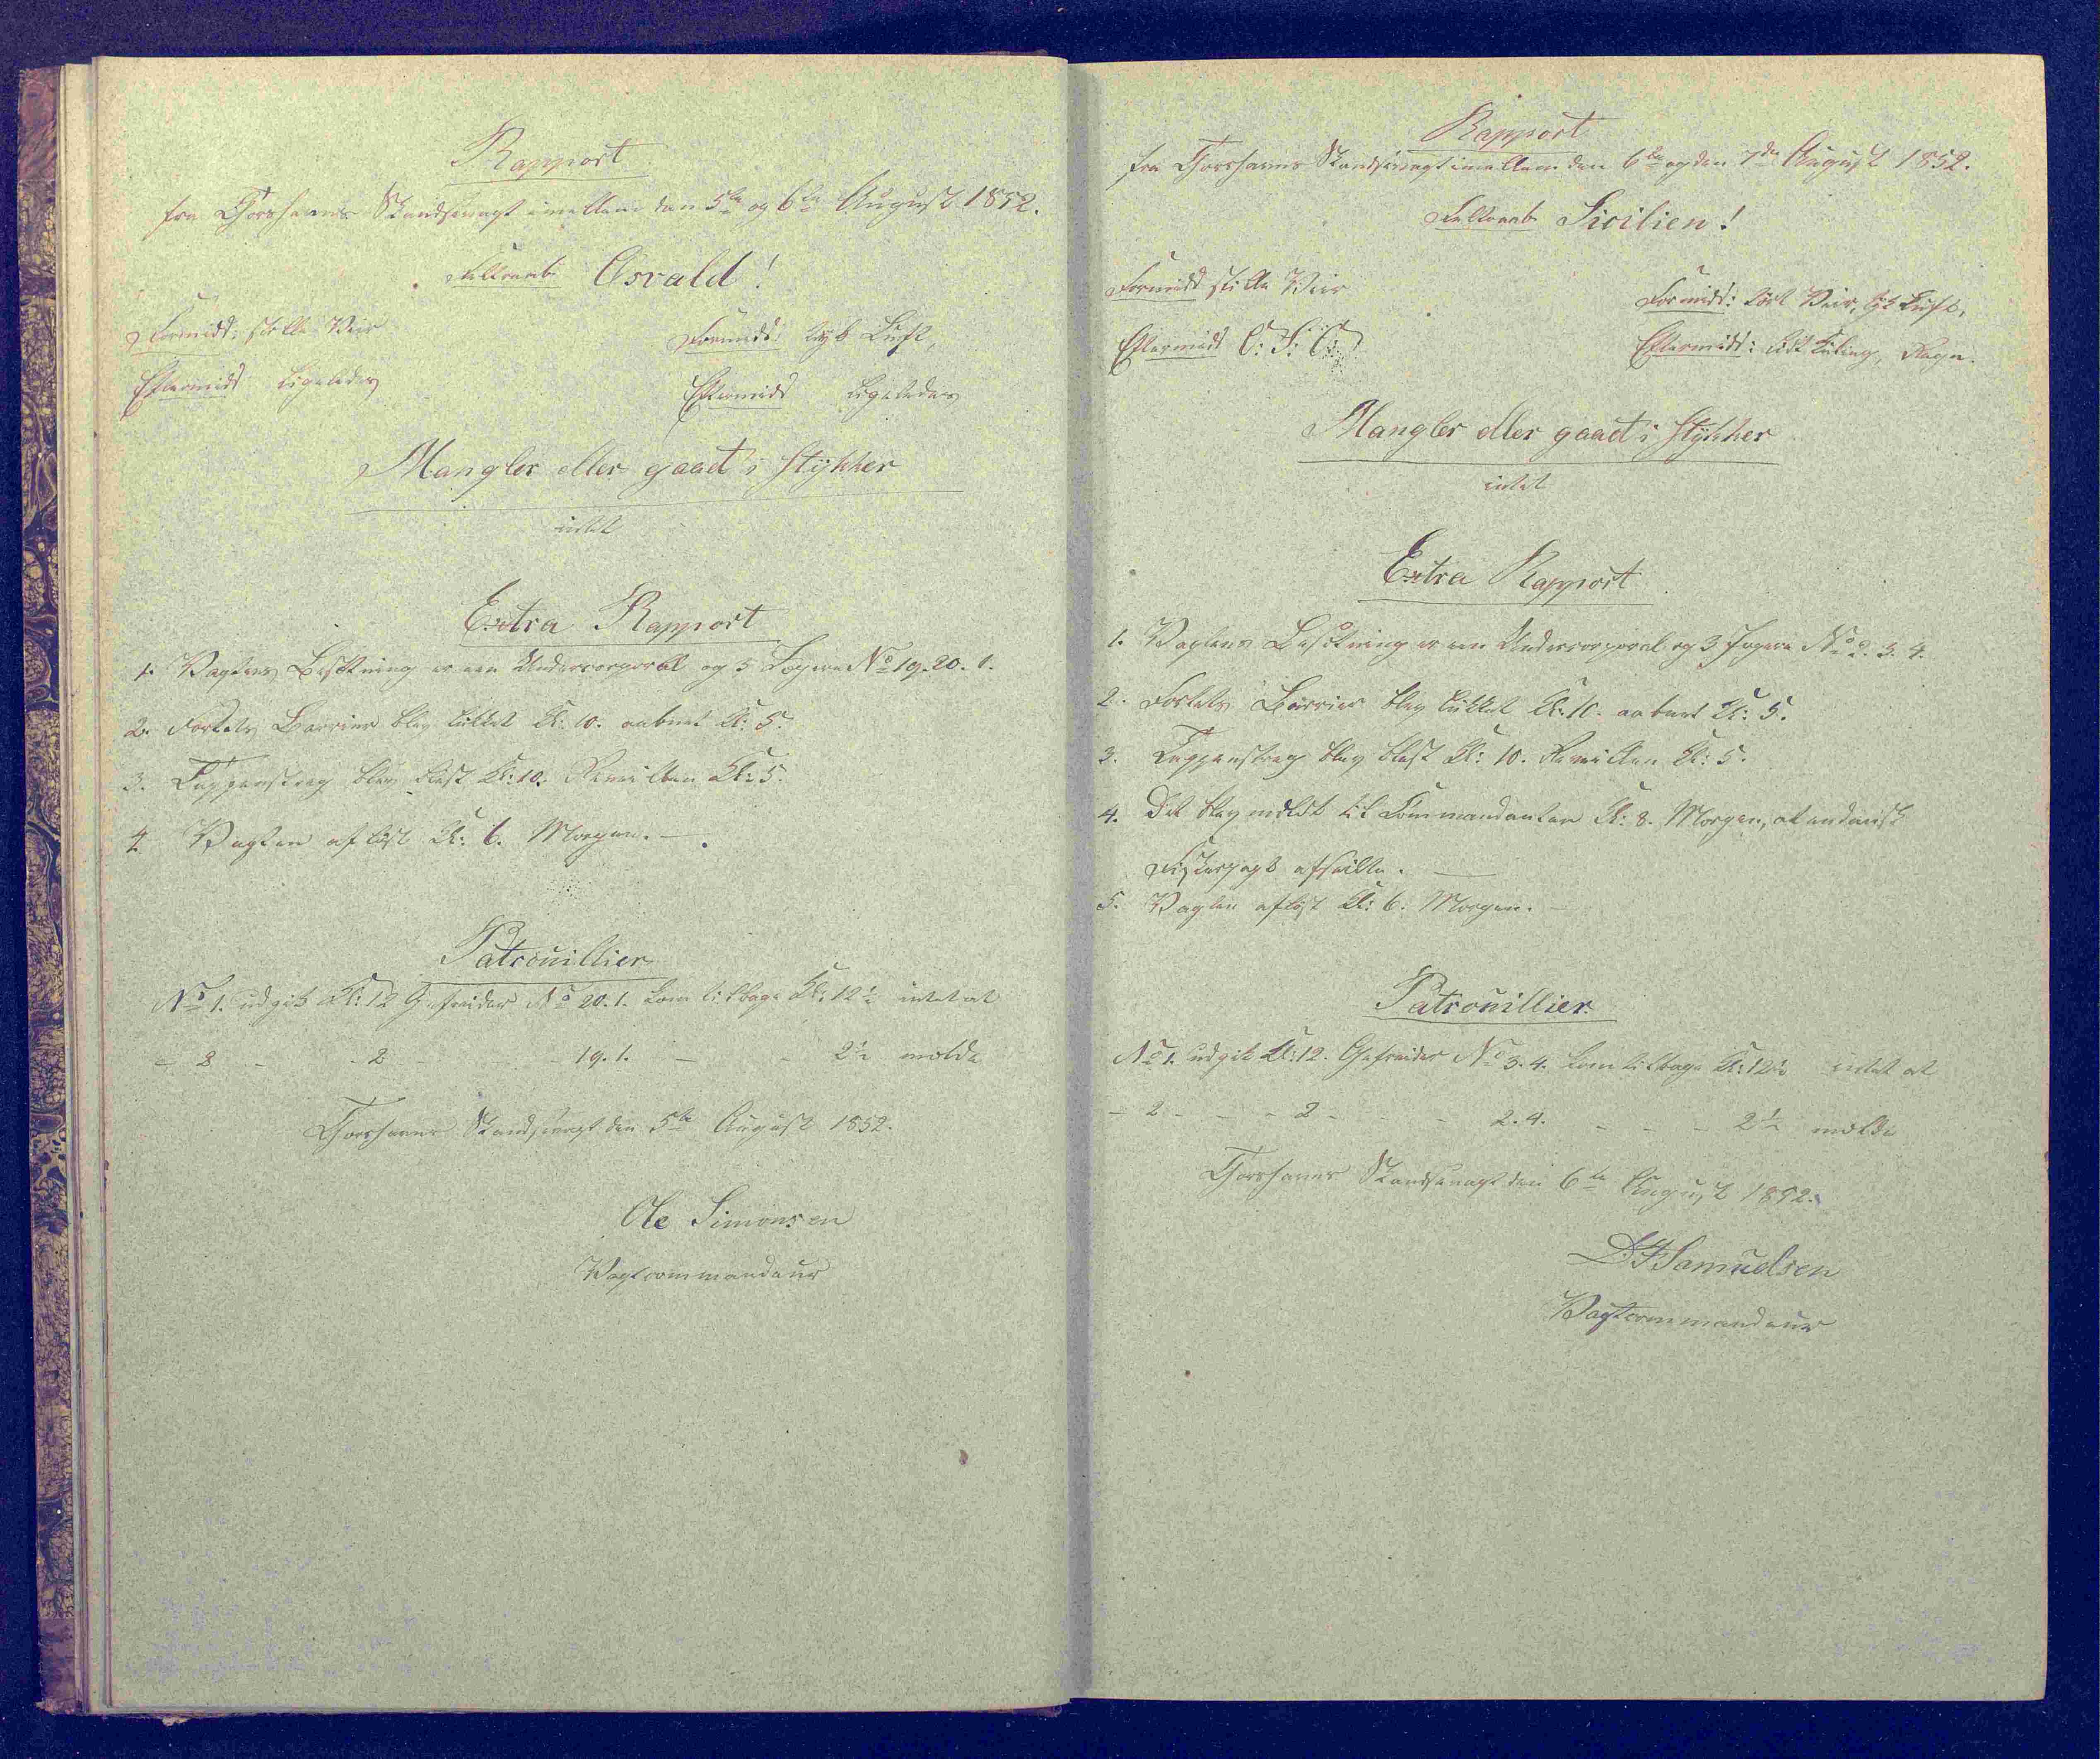 Rapport
fra Thorshavns Skandsevagt imellem den 5te og 6te August 1852.
Feltraab Osvald!
Formidd: stille Veir
Formidd: tyk Luft,
Eftermidd ligeledes
Eftermidd ligeledes
Mangler eller gaaet i stykker
intet
Extra Rapport
1. Vagtens Besætning er een Undercorporal og 3 Jægere No 19. 20. 1.
2. Fortets Barriere blev lukket Kl: 10. aabnet Kl: 5.
3. Tappenstreg blev blæst Kl: 10. Reveillen Kl: 5.
4. Vagten afløst Kl: 6. Morgen.
Patrouillier
No 1. udgik Kl: 12 Gefreider No 20. 1. kom tilbage Kl: 12½ intet at
- 2 - - 2 - - 19. 1. - - 2½ melde
Thorshavns Skandsevagt den 5te August 1852.
Ole Simonsen
Vagtcommandeur
Rapport
fra Thorshavns Skandsevagt imellem den 6te og den 7de August 1852.
Feltraab Sicilien!
Formidd stille Veir
Formidd: tyk Luft,
Eftermidd
Eftermidd: lidt Kuling, Regn.
Mangler eller gaaet i stykker
intet
Extra Rapport
1. Vagtens Besætning er een Undercorporal og 3 Jægere No 2. 3. 4.
2. Fortets Barriere blev lukket Kl: 10. aabnet Kl: 5.
3. Tappenstreg blev blæst Kl: 10. Reveillen Kl: 5.
4. Det blev meldt til Commandanten Kl: 8. Morgen, at en dansk
Fiskerjagt afseilte.
5. Vagten afløst Kl: 6. Morgen.
Patrouillier
No 1. udgik Kl: 12. Gefreider No 3. 4. kom tilbage Kl: 12½ intet at
- 2 - - - 2 - - 2. 4. - - - 2½ melde
Thorshavns Skandsevagt den 6te August 1852.
Samuelsen
Vagtcommandeur